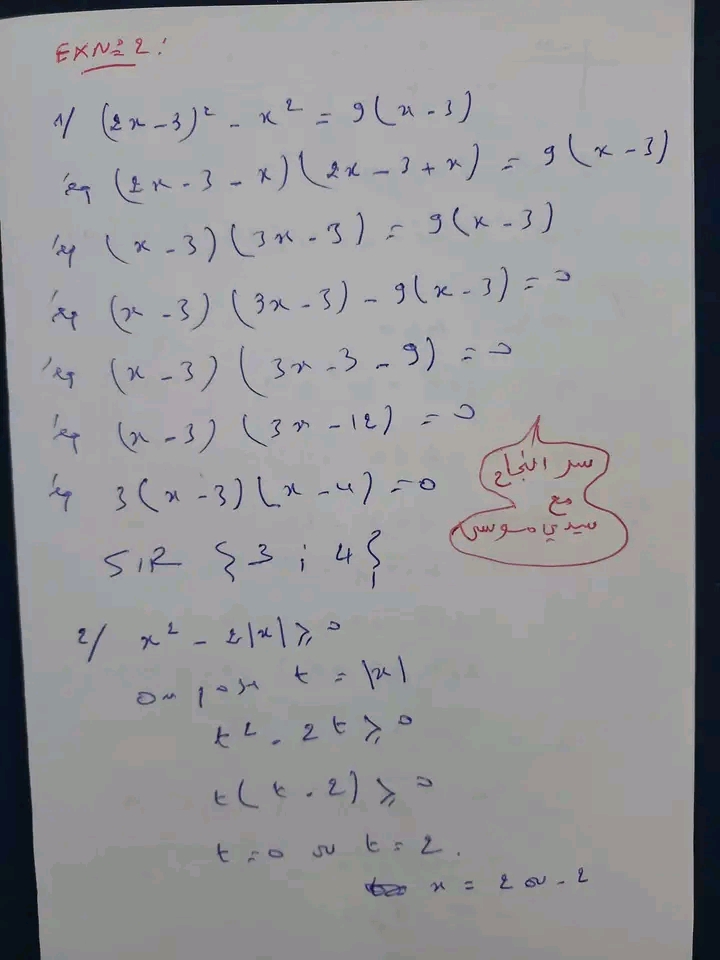 EXN°2:
1/ (2x-3)² - x² = 9(x-3)
éq (2x-3-x)(2x-3+x) = 9(x-3)
éq (x-3)(3x-3) = 9(x-3)
éq (x-3)(3x-3)-9(x-3)=0
éq (x-3)(3x-3-9)=0
éq (x-3)(3x-12)=0
éq 3(x-3)(x-4)=0
سر النجاح
مع
سيدي موسى
SIR {3;4}
2/ x² - 2|x| ⩾ 0
on pose t = |x|
t² - 2t ⩾ 0
t(t-2) ⩾ 0
t=0 ou t=2.
x = 2 ou -2